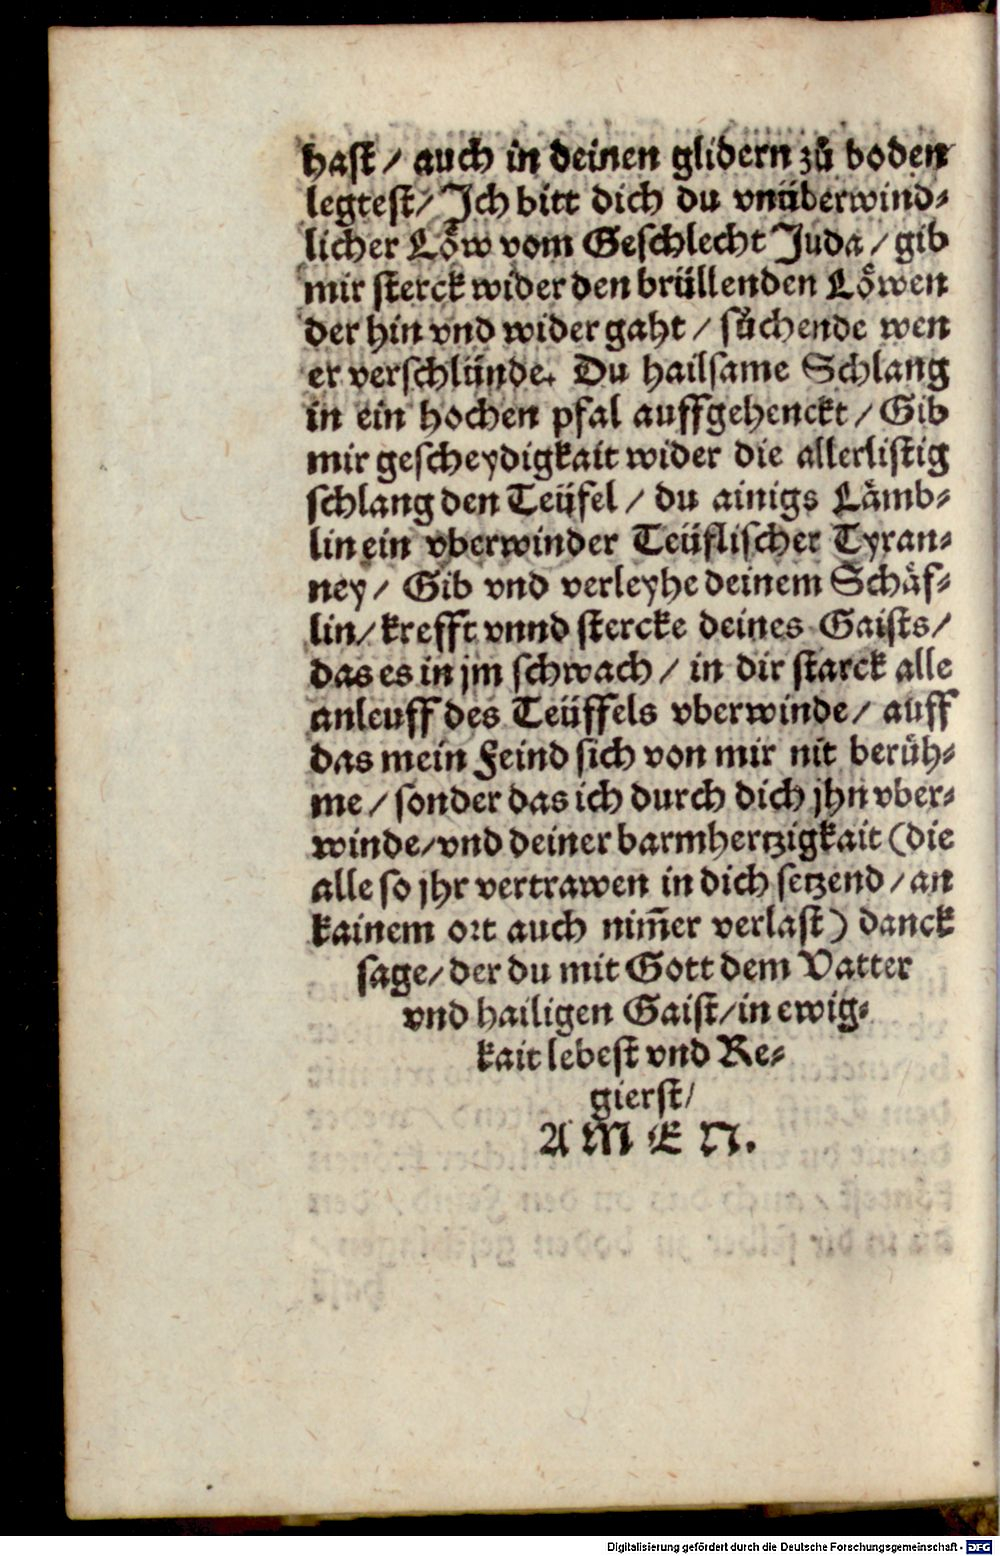 hast / auch in deinen glidern zů boden
legtest / Ich bitt dich du vnüberwind⸗
licher Loͤw vom Geschlecht Juda / gib
mir sterck wider den brüllenden Loͤwen
der hin vnd wider gaht / sůchende wen
er verschlünde. Du hailsame Schlang
in ein hochen pfal auffgehenckt / Gib
mir gescheydigkait wider die allerlistig
schlang den Teüfel / du ainigs Laͤmb⸗
lin ein vberwinder Teüflischer Tyran⸗
ney / Gib vnd verleyhe deinem Schaͤf⸗
lin / krefft vnnd stercke deines Gaists /
das es in jm schwach / in dir starck alle
anleuff des Teüffels vberwinde / auff
das mein Feind sich von mir nit berüh⸗
me / sonder das ich durch dich jhn vber⸗
winde / vnd deiner barmhertzigkait (die
alle so jhr vertrawen in dich setzend / an
kainem ort auch nim̄er verlast) danck
sage / der du mit Gott dem Vatter
vnd hailigen Gaist / in ewig⸗
kait lebest vnd Re⸗
gierst /
A M E N.
Digitalisierung gefördert durch die Deutsche Forschungsgemeinschaft - DFG